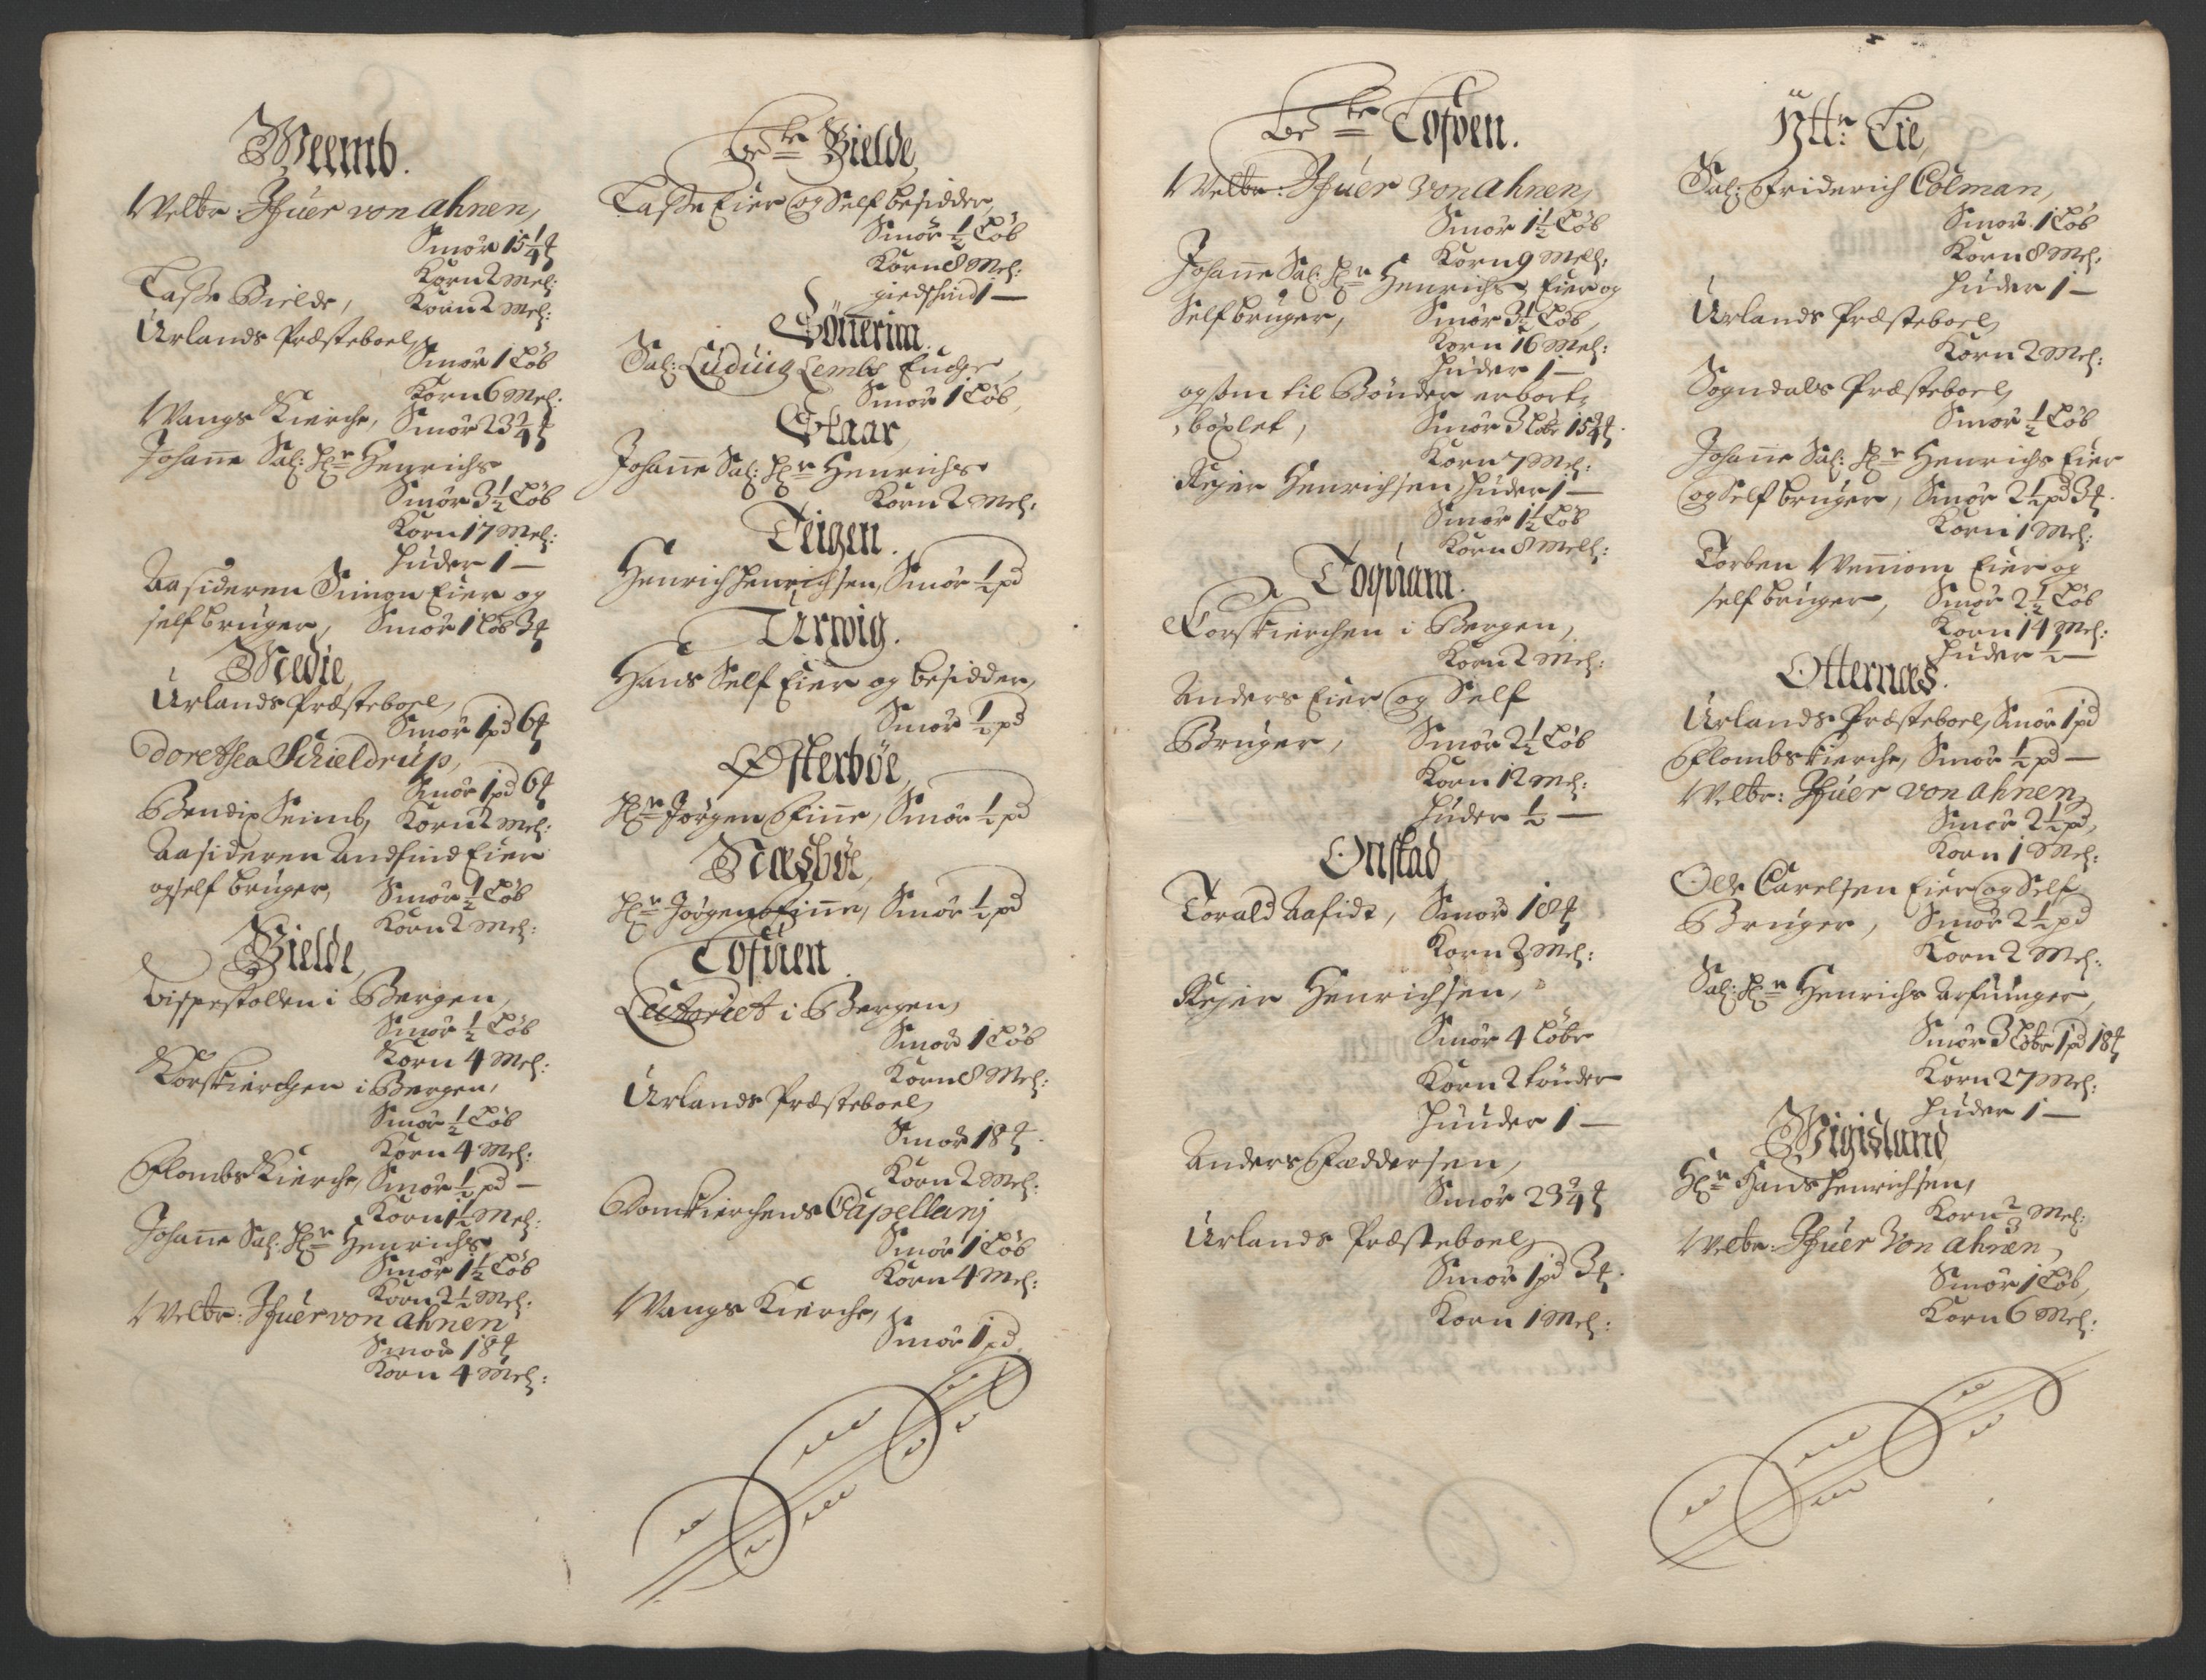 Weemb.
Welbr: Ifuer von Ahnen,
Smör 15 1/4 ℔
Korn 2 Mel:
Lasse Bielde, Korn 2 Mel:
Urlands Præsteboel,
Smör 1 Löb
Korn 6 Mel:
Wangs Kierche, Smör 23 3/4 ℔
Johanne Sal: Hr Henrichs
Smör 3 1/2 Löb
Korn 17 Mel:
Huder 1 —
Aasideren Simon Eier og
self bruger, Smör 1 Löb 3 ℔
Medie,
Urlands Præsteboel,
Smör 1 pd 6 ℔
Dorethea Schieldrup,
Smör 1 pd 6 ℔
Bendix Seimb, Korn 2 Mel:
Aasideren Andfind Eier
og self bruger, Smör 1/2 Löb
Korn 2 Mel:
Bielde,
Bispestolen i Bergen,
Smör 1/2 Löb
Korn 4 Mel:
Korskierchen i Bergen,
Smör 1/2 Löb
Korn 4 Mel:
Flombs Kierche, Smör 1/2 pd —
Korn 1 1/2 Mel:
Johanne Sal: Hr Henrichs
Smör 1 1/2 Löb
Korn 2 1/2 Mel:
Welbr: Ifuer von Ahnen
Smör 18 ℔
Korn 4 Mel:
Bielde,
Lasse Eier og Self besidder,
Smör 1/2 Löb
Korn 8 Mel:
giedskind 1 —
Lönnerim.
Sal: Luduig Lembs Enche,
Smör 1 Löb,
Glaar,
Johanne Sal: Hr Henrichs
Korn 2 Mel:
Teigen.
Henrich Henrichsen, Smör 1/2 pd
Urwig.
Hans Self Eier og besidder,
Smör 1/2 pd
Østerbøe,
Hr Jörgen Finne, Smör 1/2 pd
Næsbøe,
Hr Jörgen Finne, Smör 1/2 pd
Tofuen.
Lectoriet i Bergen,
Smör 1 Löb
Korn 8 Mel:
Urlands Præsteboel,
Smör 18 ℔
Korn 2 Mel:
Domkierchens Capellanj
Smör 1 Löb
Korn 4 Mel:
Wangs Kierche,
Smör 1 pd
Tofven.
Welbr: Ifuer von Ahnen,
Smör 1 1/2 Löb
Korn 9 Mell:
Johanne Sal: Hr Henrichs, Eier og
Self bruger, Smör 3 1/2 Löb,
Korn 16 Mel:
Huder 1 —
og som til Bönder er bort
böxlet, Smör 3 Löbe 15 3/4 ℔
Korn 7 Mel:
Rejer Henrichsen, Huder 1 —
Smör 1 1/2 Löb
Korn 8 Mell:
Toquam.
Korskierchen i Bergen,
Korn 2 Mel:
Anders Eier og Self
Bruger, Smör 2 1/2 Löb
Korn 12 Mel:
Huder 1/2 —
Onstad,
Torald Aafidt, Smör 18 ℔
Korn 3 Mel:
Rejer Henrichsen,
Smör 4 Löbe
Korn 2 tönder
Huuder 1 —
Anders Feddersen,
Smör 23 3/4 ℔
Urlands Præsteboel,
Smör 1 pd 3 ℔
Korn 1 Mel:
Yttr: Lie,
Sal: Friderich Colman,
Smör 1 Löb
Korn 8 Mel:
Huder 1 —
Urlands Præsteboel,
Korn 2 Mel:
Sogndals Præsteboel,
Smör 1/2 Löb
Johanne Sal: Hr Henrichs Eier
og Self bruger, Smör 2 1/2 pd 3 ℔
Korn 1 Mel:
Torben Wenniom Eier og
self bruger, Smör 2 1/2 Löb
Korn 14 Mel:
Huder 1/2 —
Otternæs.
Urlands Præsteboel, Smör 1 pd
Flombs Kierche, Smör 1/2 pd —
Welbr: Ifuer von Ahnen,
Smör 2 1/2 pd,
Korn 1 Mel:
Ole Carelsen Eier og Self
Bruger, Smör 2 1/2 pd
Korn 2 Mel:
Sal: Hr Henrichs Arfuinger,
Smör 3 Löbe 1 pd 18 ℔
Korn 27 Mel:
Huder 1 —
Wigisland,
Hr Hans Henrichsen,
Korn 2/3 Mel:
Welbr: Ifuer von Ahnen,
Smör 1 Löb,
Korn 6 Mel: